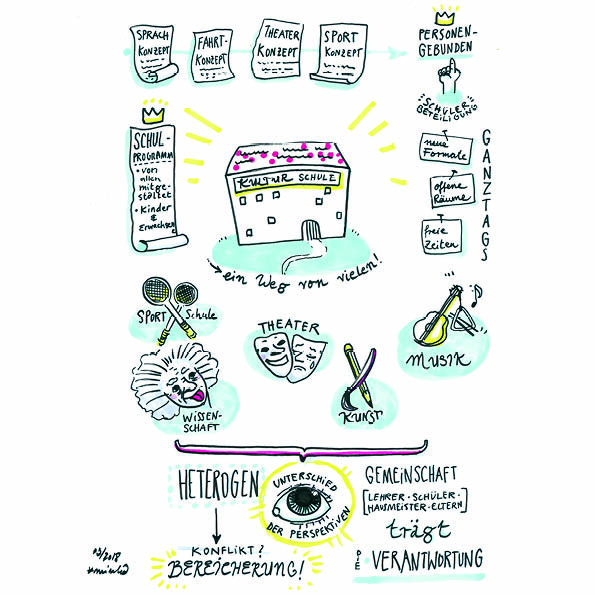 SPRACH
KONZEPT
FAHRT-
KONZEPT
THEATER
KONZEPT
SPORT
KONZEPT
PERSONEN-
GEBUNDEN
SCHÜLER
BETEILIGUNG
SCHUL-
PROGRAMM
• von
allen
mitge-
staltet
• Kinder
&
Erwachsen
KULTUR SCHULE
neue
Formate
offene
Räume
freie
Zeiten
GANZTAGS
ein Weg von vielen!
SPORT Schule
THEATER
MUSIK
WISSEN-
SCHAFT
KUNST
HETEROGEN
UNTERSCHIED
DER PERSPEKTIVEN
GEMEINSCHAFT
[LEHRER・SCHÜLER・
HAUSMEISTER・ELTERN]
trägt
DIE VERANTWORTUNG
KONFLIKT?
BEREICHERUNG!
03/2018